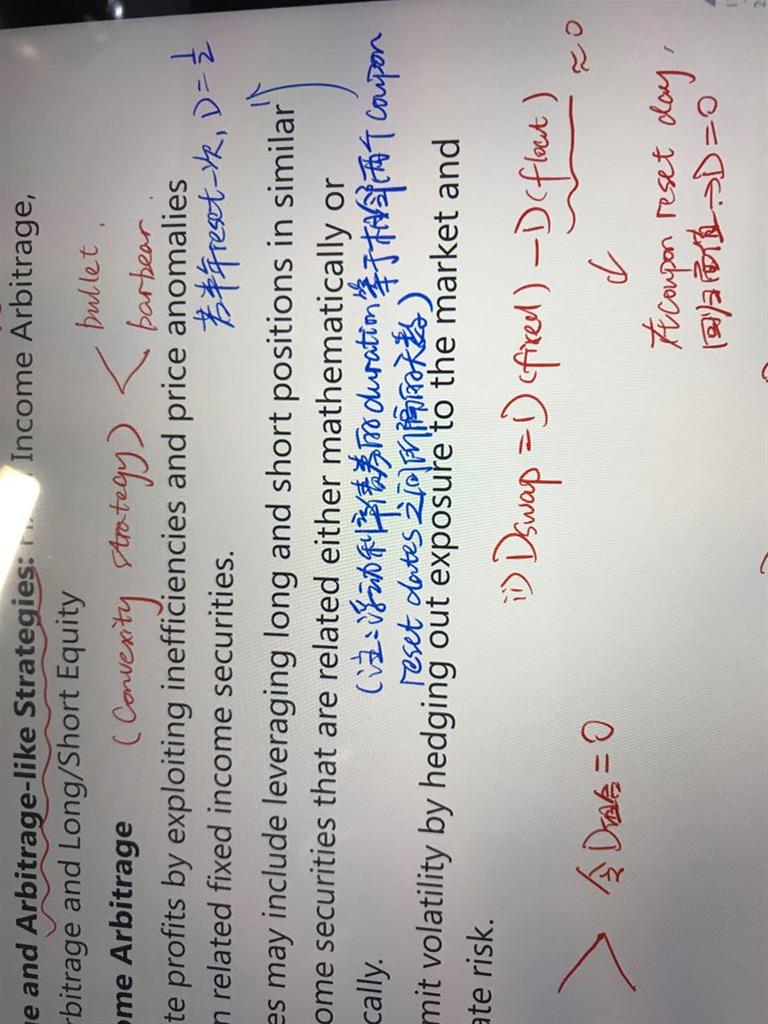 e and Arbitrage-like Strategies: Income Arbitrage,
rbitrage and Long/Short Equity
bullet.
(Convexity strategy) <
barbear.
ome Arbitrage
te profits by exploiting inefficiencies and price anomalies
n related fixed income securities.
若半年reset一次, D=½
es may include leveraging long and short positions in similar
ome securities that are related either mathematically or
(注:浮动利率债券的duration等于相邻两个coupon
cally.
reset dates之间所隔的天数)
mit volatility by hedging out exposure to the market and
ate risk.
ii) Dswap = D(fixed) - D(float) ≈0
> 令D组合=0
在coupon reset day,
回归面值→D=0